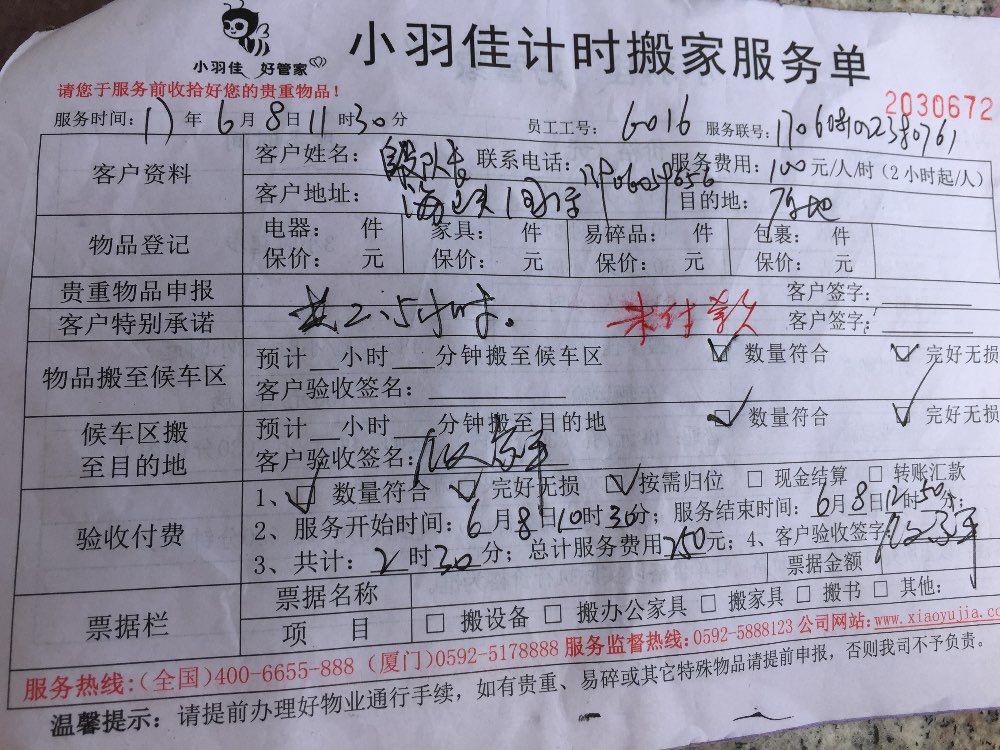 小羽佳 好管家
小羽佳计时搬家服务单
请您于服务前收拾好您的贵重物品！
2030672
服务时间：17年6月8日11时30分 员工工号：6016 服务联号：170608102380761
客户资料 客户姓名： 联系电话： 服务费用：100元/人/时（2小时起/人）
客户地址： 目的地：
物品登记 电器： 件 家具： 件 易碎品： 件 包裹： 件
保价： 元 保价： 元 保价： 元 保价： 元
贵重物品申报 客户签字：
共2.5小时。 未付款
客户特别承诺 客户签字：
物品搬至候车区 预计__小时___分钟搬至候车区 ☑数量符合 ☑完好无损
客户验收签名：
候车区搬至目的地 预计__小时___分钟搬至目的地 ☑数量符合 ☑完好无损
客户验收签名：
验收付费 1、☑数量符合 ☑完好无损 ☑按需归位 □现金结算 □转账汇款
2、服务开始时间：6月8日10时30分；服务结束时间：6月8日12时50分；
3、共计：2时30分；总计服务费用250元；4、客户验收签字
票据栏 票据名称 票据金额
项 目 □搬设备 □搬办公家具 □搬家具 □搬书 □其他：
服务热线：（全国）400-6655-888（厦门）0592-5178888 服务监督热线：0592-5888123 公司网站：www.xiaoyujia.com
温馨提示：请提前办理好物业通行手续，如有贵重、易碎或其它特殊物品请提前申报，否则我司不予负责。